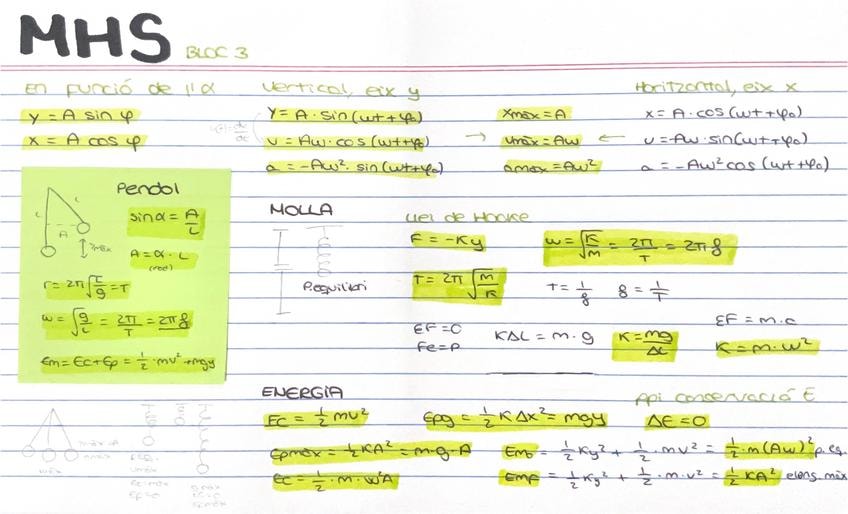 MHS BLOC 3
En funció de l'α
y = A sin φ
x = A cos φ
Vertical, eix y
y = A · sin (ωt + φ₀)
v = Aω · cos (ωt + φ₀)
a = -Aω² · sin (ωt + φ₀)
xmàx = A
→ vmàx = Aω ←
amàx = Aω²
Horitzontal, eix x
x = A · cos (ωt + φ₀)
v = -Aω · sin (ωt + φ₀)
a = -Aω² cos (ωt + φ₀)
Pèndol
L
A
sin α = A/L
A = α · L
(rad)
T = 2π √(L/g) = T
ω = √(g/L) = 2π/T = 2πf
Em = Ec + Ep = ½ · mv² + mgy
MOLLA
P.equilibri
Llei de Hooke
F = -Ky
ω = √(K/m) = 2π/T = 2πf
T = 2π √(m/K)
T = 1/f
f = 1/T
ΣF = 0
Fe = P
KΔL = m · g
K = mg/ΔL
ΣF = m · a
K = m · ω²
ENERGIA
Ec = ½ mv²
Epg = ½ KΔx² = mgy
Ppi conservació E
ΔE = 0
Epmàx = ½ KA² = m · g · A
Em₀ = ½ Ky² + ½ · mv² = ½ · m (Aω)² p.eq.
Ec = ½ · m · ω²A
Emf = ½ Ky² + ½ · m · v² = ½ KA² elong. màx